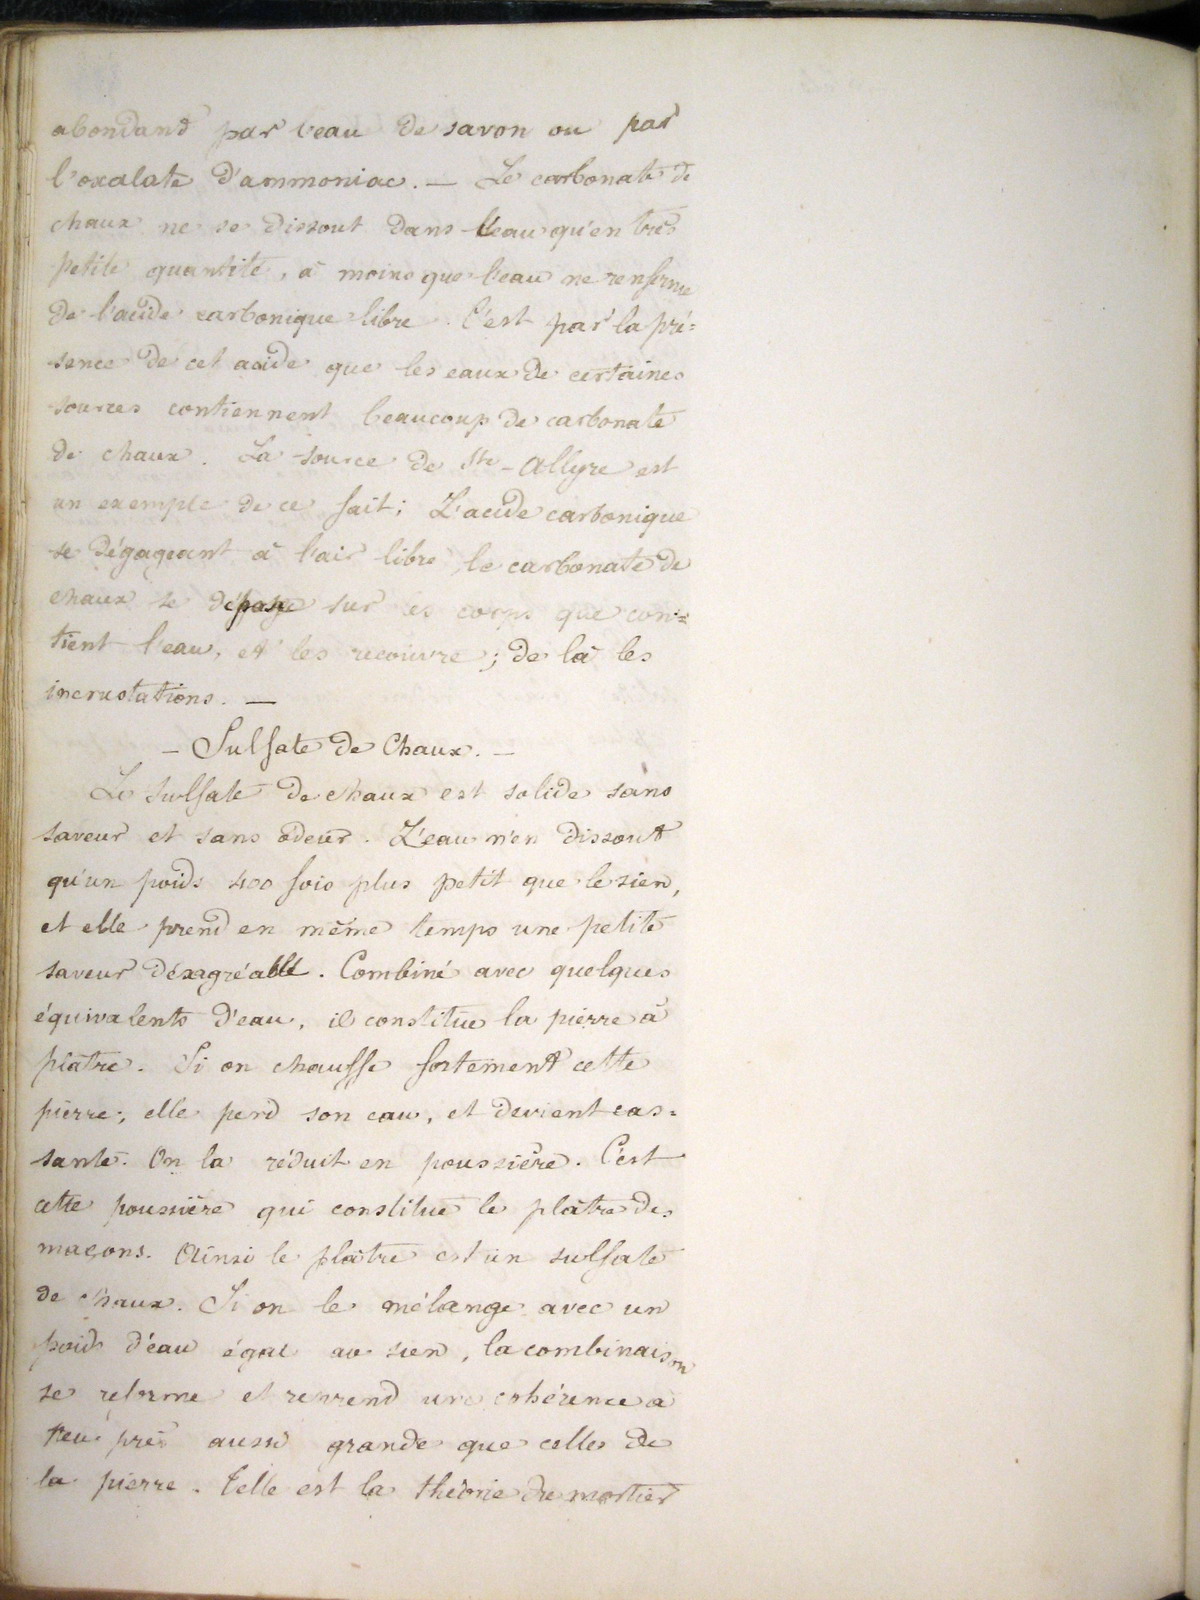 abondand par l'eau de savon ou par
l'oxalate d'ammoniac. — Le carbonate de
chaux ne se dissout dans l'eau qu'en très
petite quantité, à moins que l'eau ne renferme
de l'acide carbonique libre. C'est par la pré=
sence de cet acide que les eaux de certaines
sources contiennent beaucoup de carbonate
de chaux. La source de Ste-Allyre est
un exemple de ce fait; L'acide carbonique
se dégageant à l'air libre, le carbonate de
chaux se dépose sur les corps que con=
tient l'eau, et les recouvre; de là les
incrustations. —
— Sulfate de Chaux. —
Le sulfate de chaux est solide sans
saveur et sans odeur. L'eau n'en dissout
qu'un poids 400 fois plus petit que le sien,
et elle prend en même temps une petite
saveur désagréable. Combiné avec quelques
équivalents d'eau, il constitue la pierre à
plâtre. Si on chauffe fortement cette
pierre; elle perd son eau, et devient cas=
sante. On la réduit en poussière. C'est
cette poussière qui constitue le plâtre des
maçons. Ainsi le plâtre est un sulfate
de chaux. Si on le mélange avec un
poids d'eau égal au sien, la combinaison
se reforme et reprend une cohérence à
peu près aussi grande que celles de
la pierre. Telle est la théorie du mortier